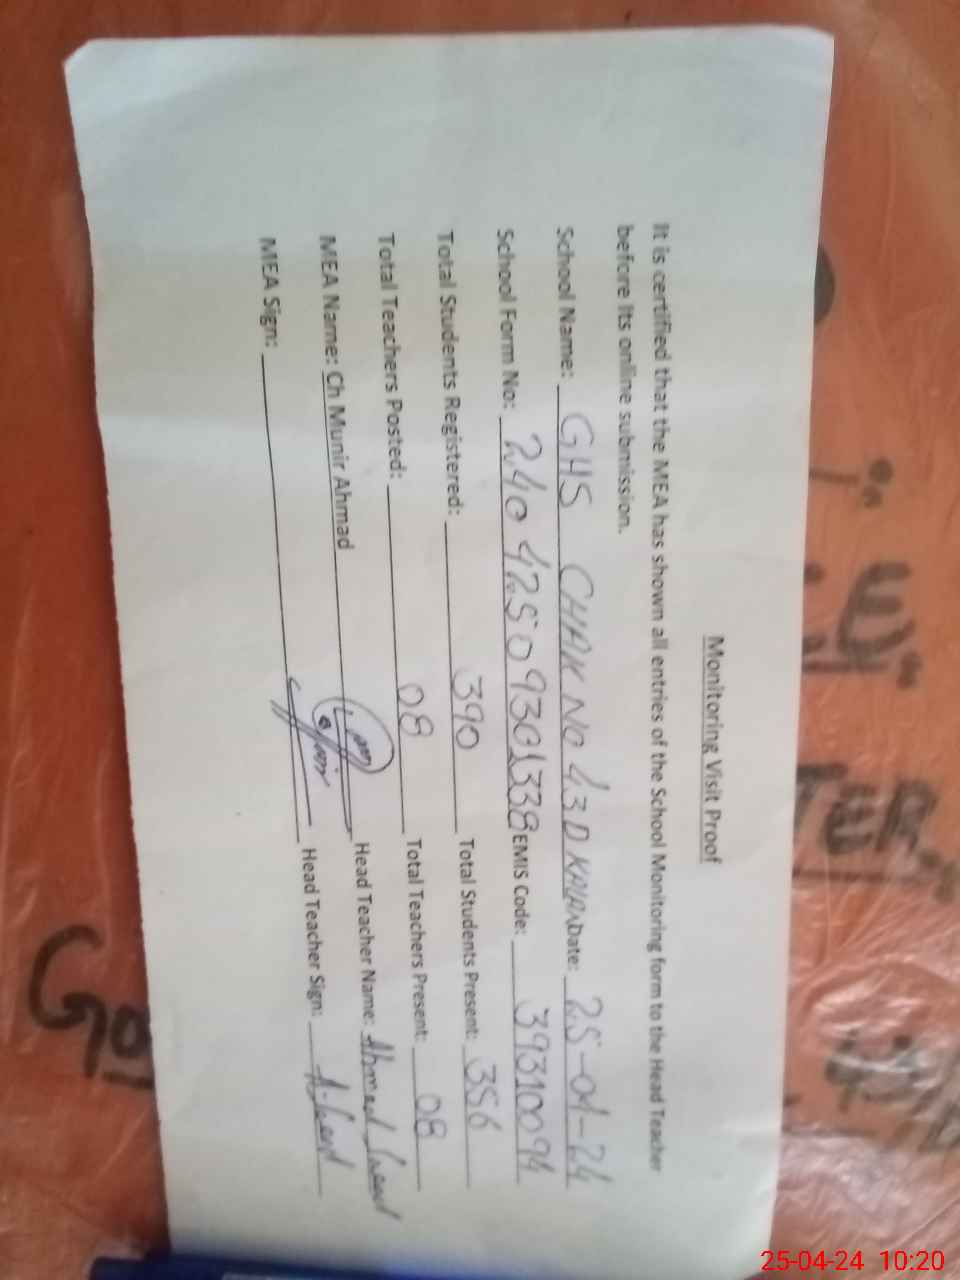 Monitoring Visit Proof
It is certified that the MEA has shown all entries of the School Monitoring form to the Head Teacher
before its online submission.
School Name: GHS CHAK NO 43D KHAN Date: 25-04-24
School Form No: 24042509301338 EMIS Code: 39310094
Total Students Registered: 390 Total Students Present: 356
Total Teachers Posted: 08 Total Teachers Present: 08
MEA Name: Ch Munir Ahmad Head Teacher Name: Ahmad
MEA Sign: Head Teacher Sign:
Go
25-04-24 10:20